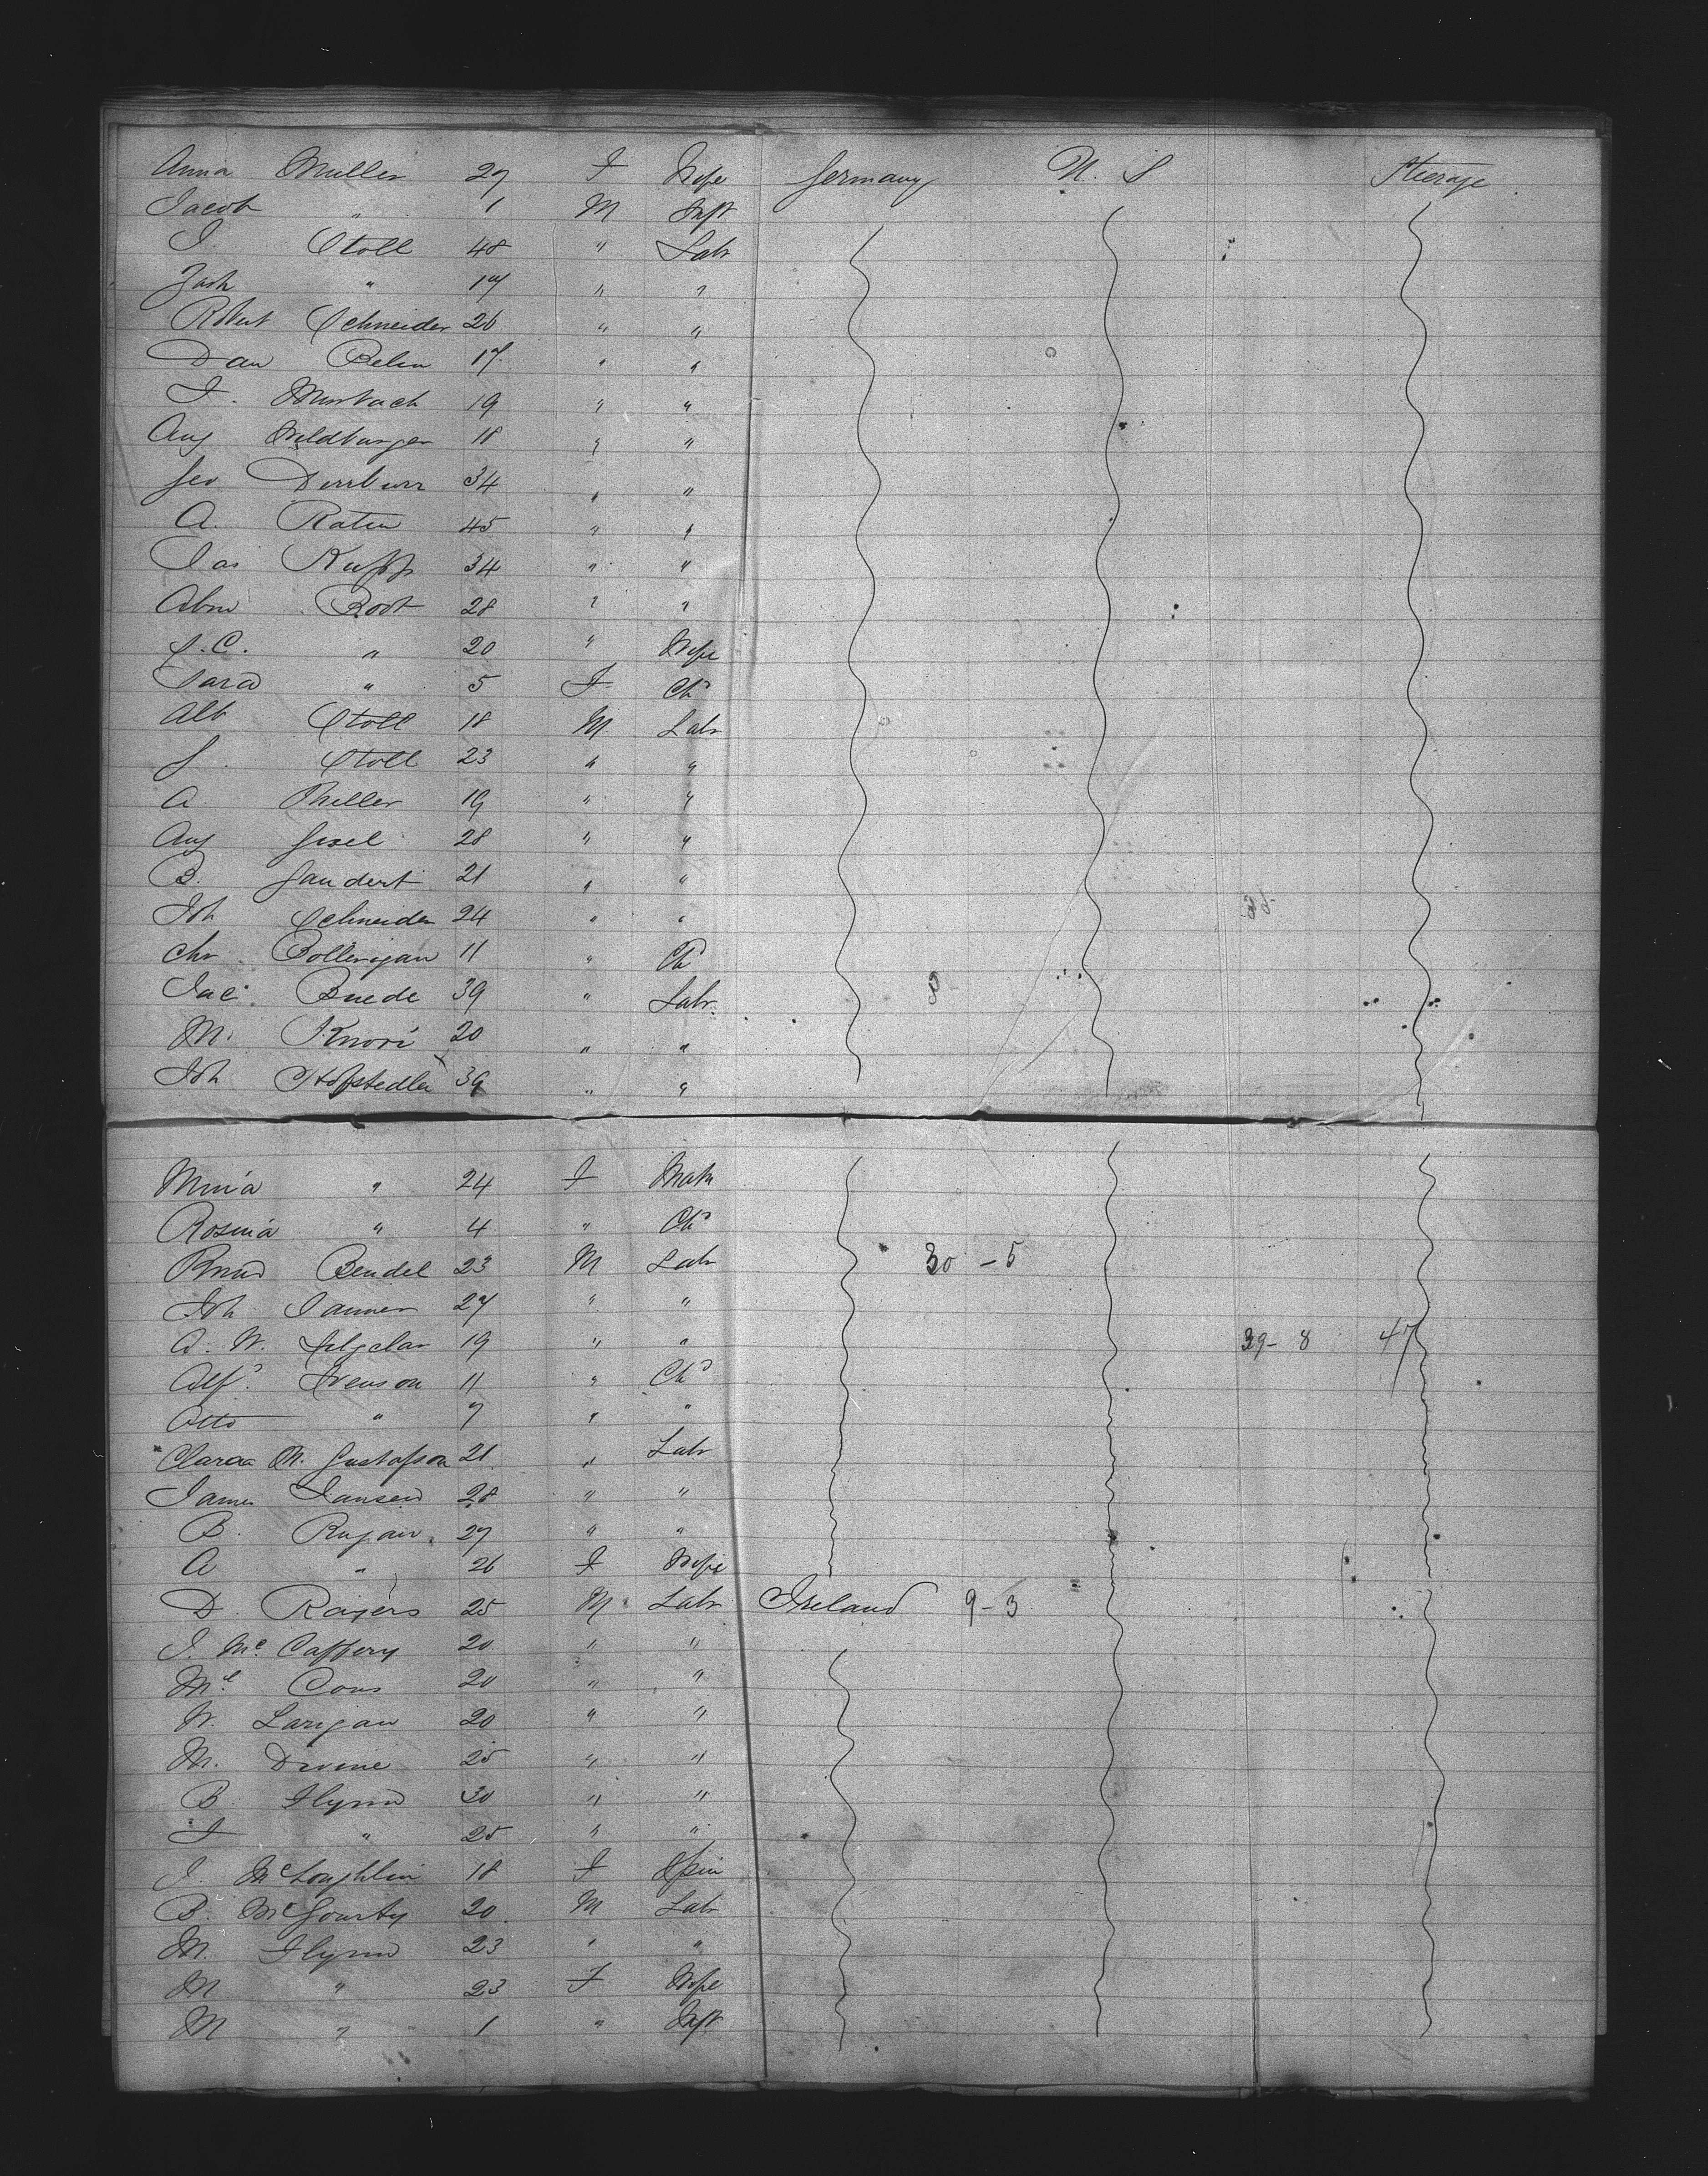 Anna Muller 27 F Wife Germany U. S Steerage
Jacob " 1 M Inft
J. Stoll 48 " Labr
Zach " 17 " "
Robert Schneider 26 " "
Dan 17 " "
F. Murbach 19 " "
Aug Wildburger 18 " "
Geo 34 " "
A. 45 " "
Jas Rupp 34 " "
Abm Root 28 " "
S. C. " 20 " Wife
Sara " 5 F Chd
Alb Stoll 18 M Labr
J. Stoll 23 " "
A Miller 19 " "
Aug Gisel 28 " "
B. 21 " "
Joh Schneider 24 " "
Chr 11 " Ch
Jac. Buede 39 " Labr.
M. Knori 20 " "
Joh Hofstedler 39 " "
Mina " 24 F
Rosina " 4 " Chd
Bendel 23 M Labr 30 - 5
Joh Tanner 27 " "
A. W. 19 " " 39 - 8 47
Alfd. Svenson 11 " Chd
Otto " 7 " "
Claraa M. Gustafson 21 " Labr
James Jansen 28 " "
B. Rugan 27 " "
A " 26 F Wife
D. Rogers 25 M Labr Ireland 9 - 3
J. McCaffery 20 " "
Ml. Cons 20 " "
W. Larigan 20 " "
M. Devine 25 " "
B. Flynn 30 " "
F " 25 " "
J. McLoughlin 18 F Spin
B. McGourty 20 M Labr
M. Flynn 23 " "
M " 23 F Wife
M " 1 " Inft